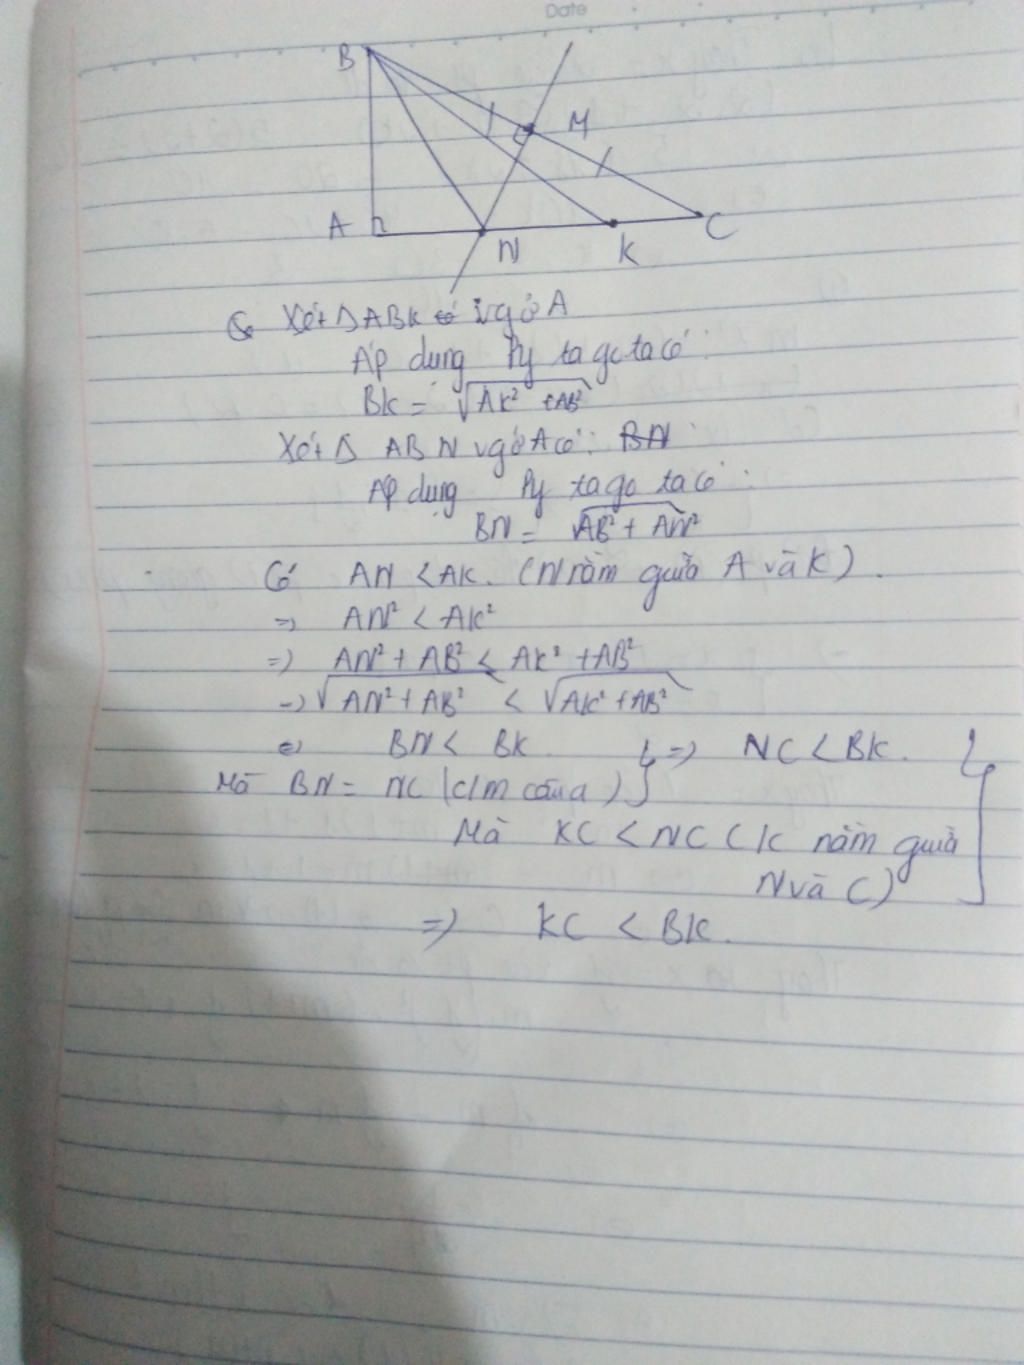 Date
B
M
A
N
K
C
Xét Δ ABK vg ở A
Áp dụng Py ta go ta có :
BK = √AK² + AB²
Xét Δ ABN vg ở A có : BN
Áp dụng Py ta go ta có :
BN = √AB² + AN²
Có AN < AK. (N nằm giữa A và K).
=> AN² < AK²
=> AN² + AB² < AK² + AB²
=> √AN² + AB² < √AK² + AB²
<=> BN < BK. } => NC < BK. }
Mà BN = NC (c/m câu a) }
Mà KC < NC (K nằm giữa
N và C)
=> KC < BK.